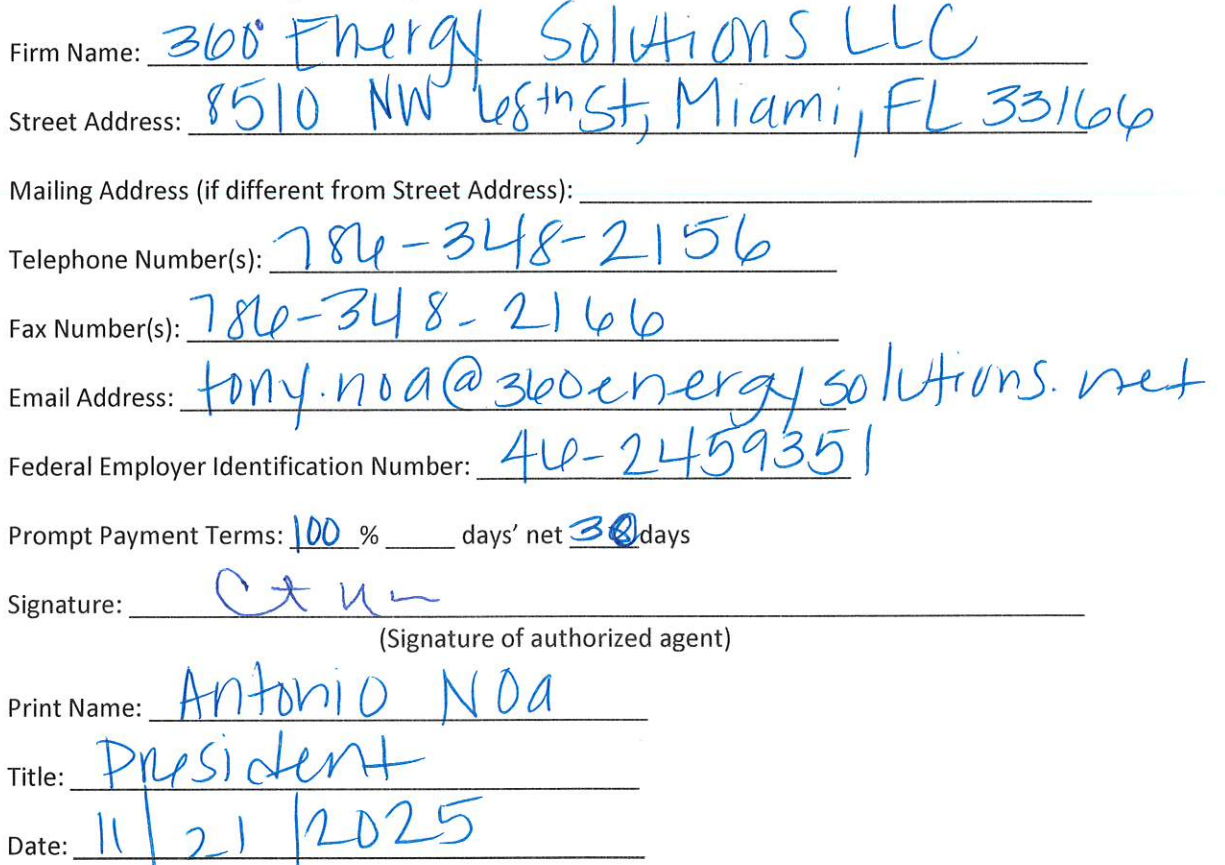 Firm Name: 360 Energy Solutions LLC
Street Address: 8510 NW 68th St, Miami, FL 33166
Mailing Address (if different from Street Address):
Telephone Number(s): 786-348-2156
Fax Number(s): 786-348-2166
Email Address: tony.noa@360energysolutions.net
Federal Employer Identification Number: 46-2459351
Prompt Payment Terms: 100 % days' net 30 days
Signature:
(Signature of authorized agent)
Print Name: Antonio Noa
Title: President
Date: 11/21/2025